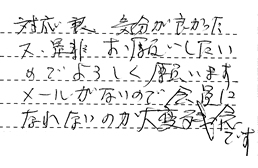 対応も良く気分が良かった
又、是非お願いしたい
のでよろしく願います
メールがないので会員に
なれないのが大変残念
です